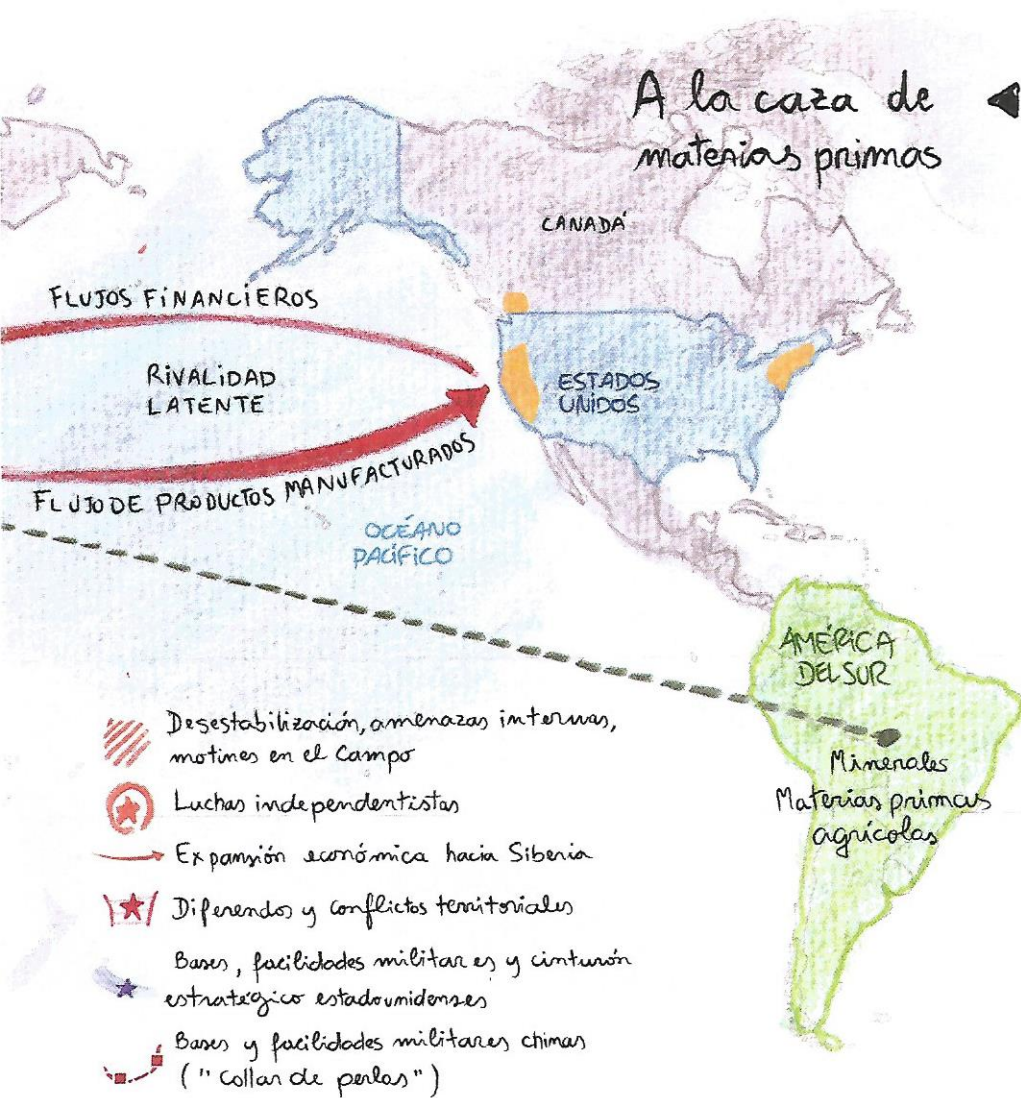 A la caza de
materias primas
CANADÁ
FLUJOS FINANCIEROS
RIVALIDAD
LATENTE
ESTADOS
UNIDOS
FLUJO DE PRODUCTOS MANUFACTURADOS
OCÉANO
PACÍFICO
AMÉRICA
DEL SUR
Minerales
Materias primas
agrícolas
Desestabilización, amenazas internas,
motines en el Campo
Luchas independentistas
Expansión económica hacia Siberia
Diferendos y conflictos territoriales
Bases, facilidades militares y cinturón
estratégico estadounidenses
Bases y facilidades militares chinas
("Collar de perlas")